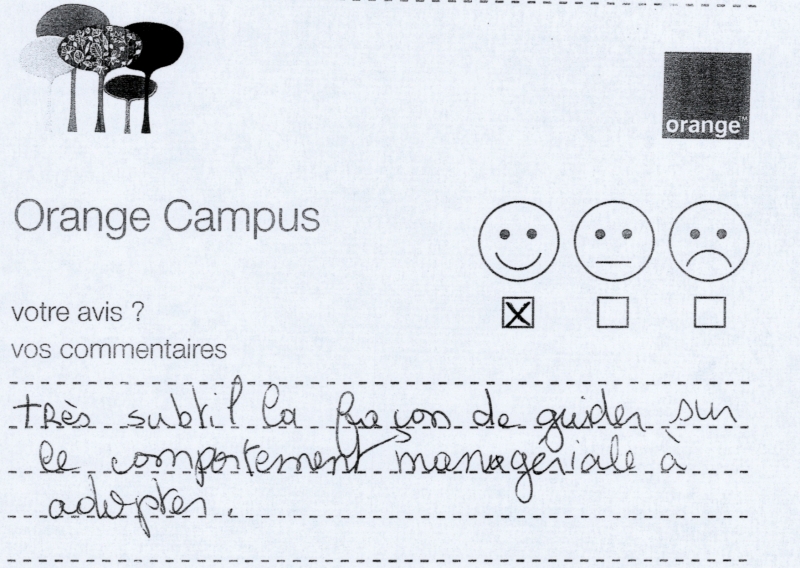 orange™
Orange Campus
votre avis ?
vos commentaires
très subtil la façon de guider sur
le comportement managériale à
adopter.